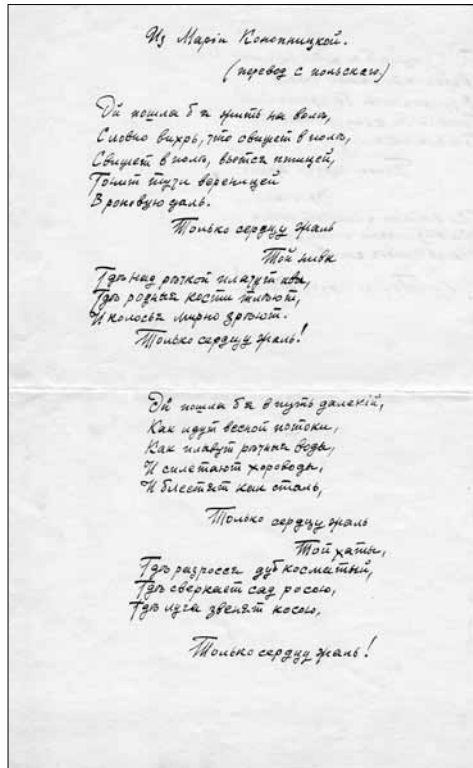 Из Маріи Конопницкой.
(перевод с польскаго)
Ой пошла б я жить на волѣ,
Словно вихрь, что свищет в полѣ,
Свищет в полѣ, вьется птицей,
Гонит тучи вереницей
В роковую даль.
Только сердцу жаль
Той нивы
Гдѣ над рѣчкой плачут ивы,
Гдѣ родныя кости тлѣют,
И колосья мирно зрѣют.
Только сердцу жаль!
Ой пошла б я в путь далекій,
Как идут весной потоки,
Как плывут рѣчныя воды,
И сплетают хороводы,
И блестят как сталь,
Только сердцу жаль
Той хаты,
Гдѣ разросся дуб косматый,
Гдѣ сверкает сад росою,
Гдѣ луга звенят косою,
Только сердцу жаль!